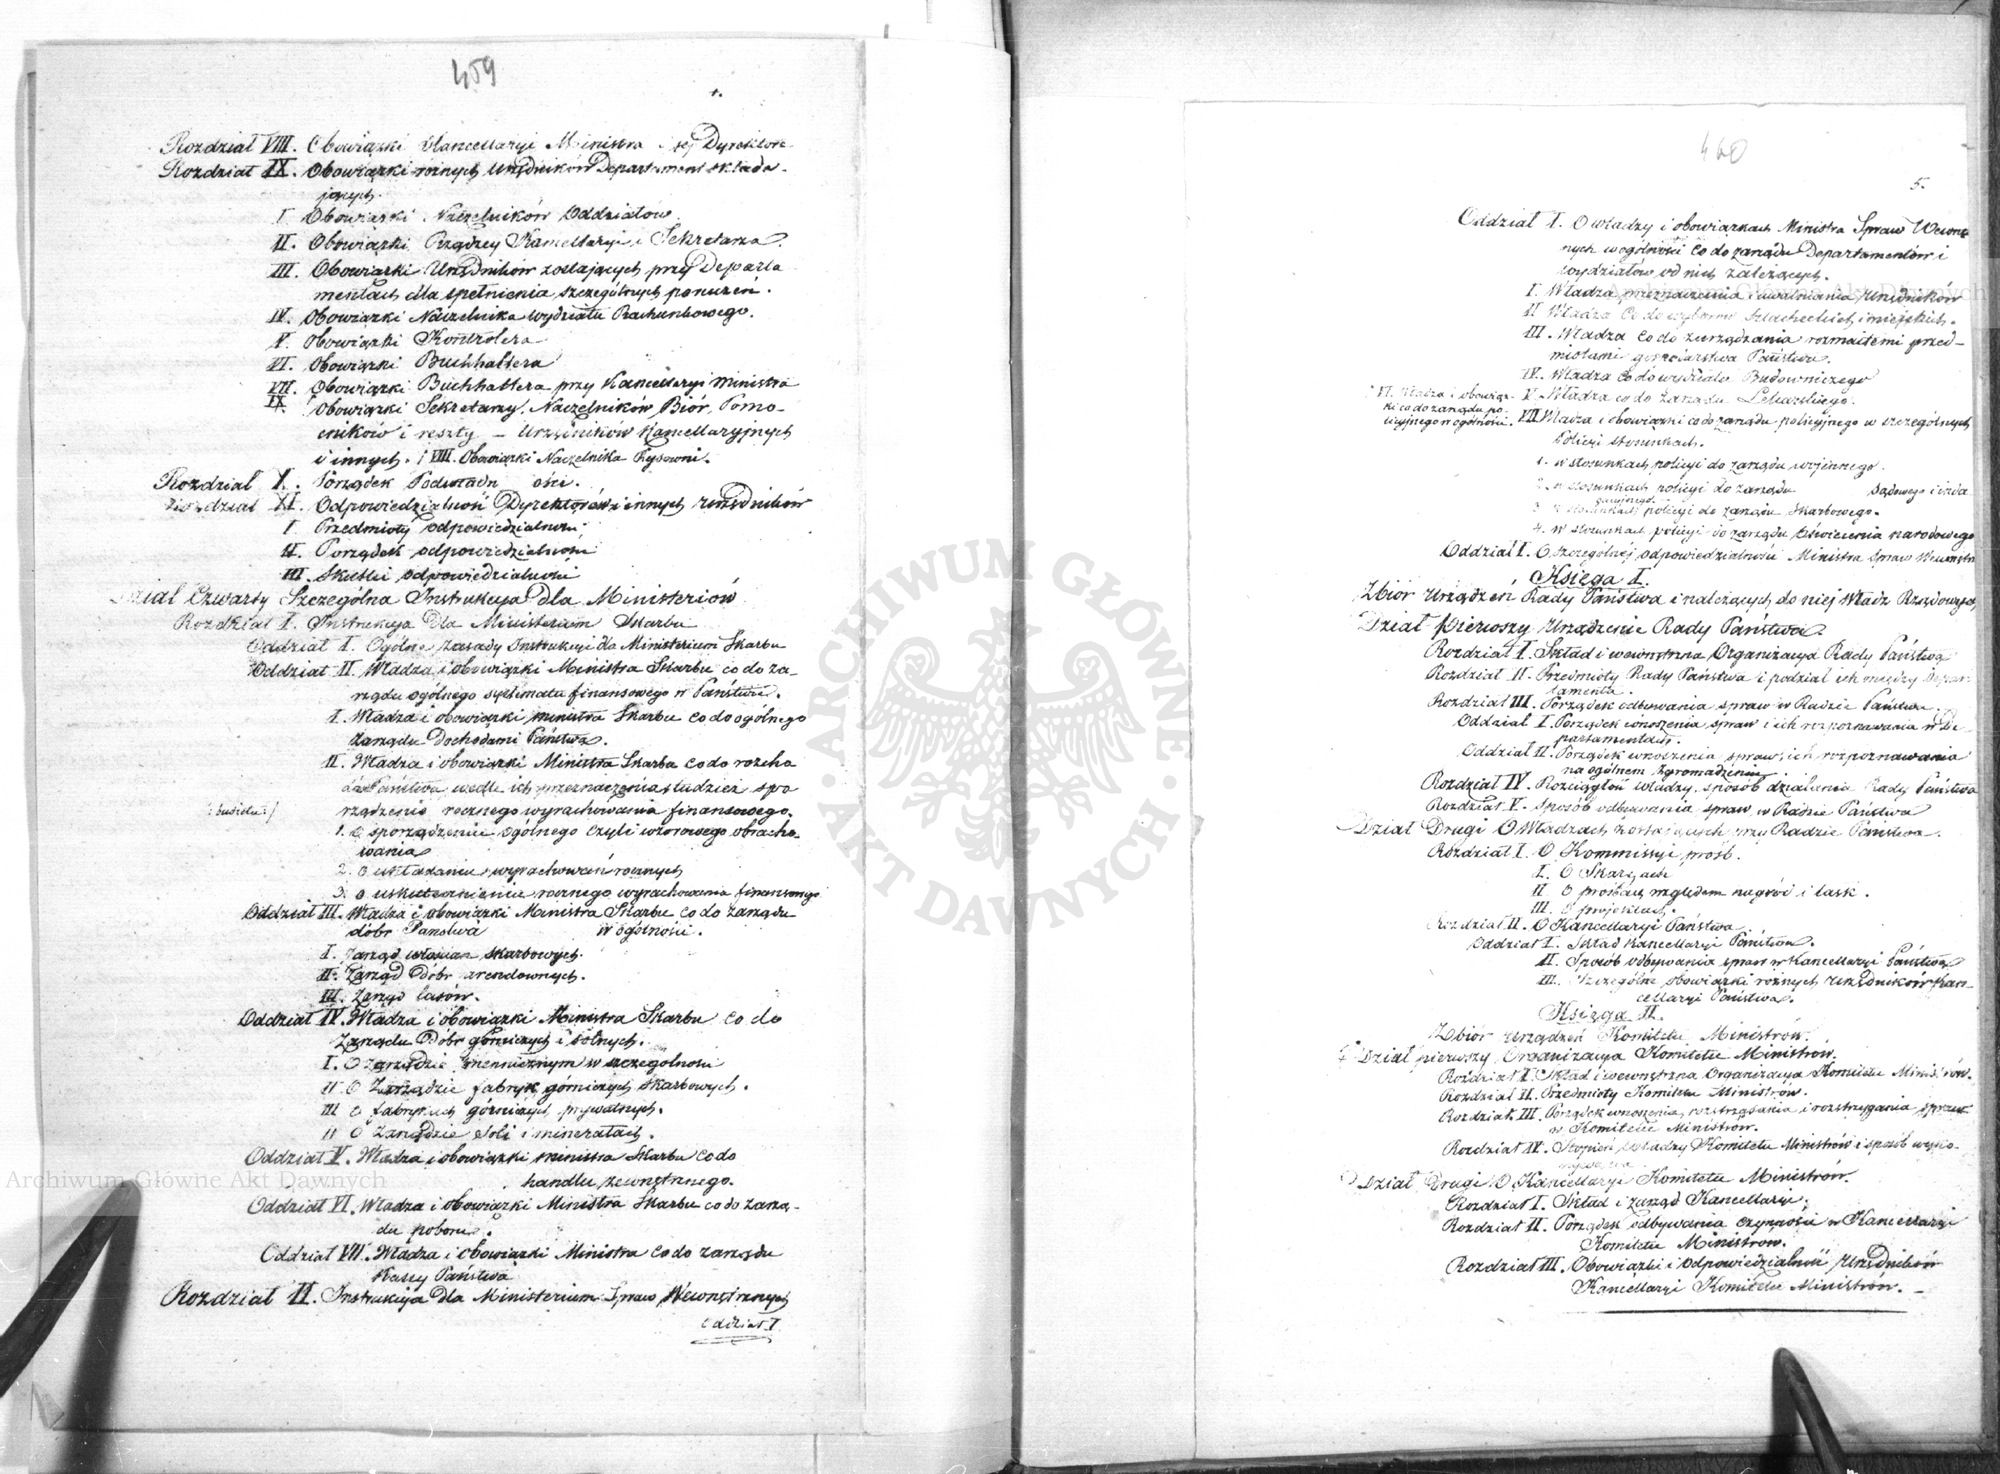 459
Rozdział VIII. Obowiązki Kancellaryi Ministra i tej Dyrektora
Rozdział IX. Obowiązki rożnych Urzędników Departament składa-
jących.
I Obowiązki Naczelników Oddziałów
II. Obowiązki Rządzcy Kancellaryi i Sekretarza.
III. Obowiązki Urzędników zostających przy Departa
mentach dla spełnienia szczególnych poruzeń.
IV. Obowiązki Naczelnika wydziału Rachunkowego.
V. Obowiązki Kontrolera
VI. Obowiązki Buchhaltera
VII. Obowiązki Buchhaltera przy Kancellaryi Ministra
IX. Obowiązki Sekretarzy, Naczelników Biór, Pomo-
cników i reszty – Urzędników Kancellaryjnych
i innych. / VIII. Obowiązki Naczelnika Rysowni.
Rozdział X. Porządek Podwładn ości.
Rozdział XI. Odpowiedzialność Dyrektorów i innych Urzędników
I. Przedmioty odpowiedzialności
II. Porządek odpowiedzialności
III. Skutki odpowiedzialności
Dział Czwarty Szczególna Instrukcya dla Ministeriów
Rozdział I. Instrukcya Dla Ministerium Skarbu
Oddział I. Ogólne zasady Instrukcyi dla Ministerium Skarbu
Oddział II. Władza i obowiązki Ministra Skarbu co do za-
rządu ogólnego systematu finansowego w Państwie.
I. Władza i obowiązki ministra Skarbu co do ogólnego
zarządu Dochodami Państwa.
II. Władza i obowiązki Ministra Skarbu co do rozcho
dów Państwa wedle ich przeznaczenia tudzież spo
rządzenie rocznego wyrachowania finansowego.
/: budżetu :/
1. o sporządzeniu ogólnego czyli wzorowego obracho-
wania
2. o układaniu wyrachowań rocznych
3. o uskutecznieniu rocznego wyrachowania finansowego
Oddział III. Władza i obowiązki Ministra Skarbu co do zarządu
dóbr Państwa w ogólności.
I. Zarząd włościan skarbowych.
II. Zarząd Dóbr arendownych.
III. Zarząd lasów.
Oddział IV. Władza i obowiązki Ministra Skarbu co do
Zarządu Dóbr górniczych i solnych.
I. O zarządzie mennicznym w szczególności
II O Zarządzie fabryk górniczych skarbowych.
III O fabrykach górniczych prywatnych.
II O Zarządzie Soli i minerałach.
Oddział V. Władza i obowiązki ministra Skarbu co do
handlu zewnętrznego.
Oddział VI. Władza i obowiązki Ministra Skarbu co do zarzą-
du poboru.
Oddział VII. Władza i obowiązki Ministra co do zarządu
Kassy Państwa
Rozdział II. Instrukcya dla Ministerium Spraw Wewnętrznych
Oddział I.
460
5.
Oddział I. O władzy i obowiązkach Ministra Spraw Wewnę
trznych w ogólności co do zarządu Departamentów i
wydziałów od nich zależących.
I. Władza przeznaczenia i uwalniania Urzędników
II Władza co do wyborów szlacheckich i miejskich.
III. Władza co do zarządzania rozmaitemi przed-
miotami gospodarstwa Państwa.
IV. Władza co do wydziału Budowniczego
V. Władza co do zarządu Lekarskiego.
VI. Władza i obowiąz-
ki co do zarządu po-
licyjnego w ogólności.
VII Władza i obowiązki co do zarządu policyjnego w szczególnych
Policyi stosunkach.
1. w stosunkach policyi do zarządu wojennego.
2. w stosunkach policyi do zarządu Sądowego i inda
gacyjnego.
3. w stosunkach policyi do zarządu Skarbowego.
4. w stosunkach policyi do zarządu Oświecenia narodowego
Oddział I. O szczególnej odpowiedzialności Ministra Spraw Wewnętrz
Księga I.
Zbiór Urządzeń Rady Państwa i należących do niej Władz Rządowych
Dział pierwszy Urządzenie Rady Państwa.
Rozdział I. Skład i wewnętrzna Organizacya Rady Państwa
Rozdział II. Przedmioty Rady Państwa i podział ich między Depar-
tamenta.
Rozdział III. Porządek odbywania spraw w Radzie Państwa.
Oddział I. Porządek wnoszenia spraw i ich rozpoznawania w De-
partamentach.
Oddział II. Porządek wnoszenia spraw, ich rozpoznawania
na ogólnem zgromadzeniu.
Rozdział IV. Rozciągłość władzy, sposób działania Rady Państwa
Rozdział V. sposób odbywania spraw w Radzie Państwa
Dział Drugi O Władzach zostających przy Radzie Państwa.
Rozdział I. O Kommissyi próśb.
I. O Skargach
II O prośbach względem nagród i łask.
III. O projektach.
Rozdział II. O Kancellaryi Państwa
Oddział I. Skład Kancellaryi Państwa.
II. Sposób odbywania spraw w Kancellaryi Państwa
III. Szczególne obowiązki rożnych Urzędników Kan-
cellaryi Państwa.
Księga II.
Zbiór Urządzeń Komitetu Ministrów.
Dział pierwszy, Organizacya Komitetu Ministrów.
Rozdział I. Skład i wewnętrzna Organizacya Komitetu Ministrów.
Rozdział II. Przedmioty Komitetu Ministrów.
Rozdział III. Porządek wnoszenia, roztrząsania i rozstrzygania spraw
w Komitecie Ministrów.
Rozdział IV. Stopień Władzy Komitetu Ministrów i sposób wyko-
nywania
Dział Drugi O Kancellaryi Komitetu Ministrów.
Rozdział I. Skład i zarząd Kancellaryi.
Rozdział II. Porządek odbywania czynności w Kancellaryi
Komitetu Ministrów.
Rozdział III. Obowiązki i Odpowiedzialność Urzędników
Kancellaryi Komitetu Ministrów. –
ARCHIWUM GŁÓWNE AKT DAWNYCH
Archiwum Główne Akt Dawnych
Archiwum Główne Akt Dawnych